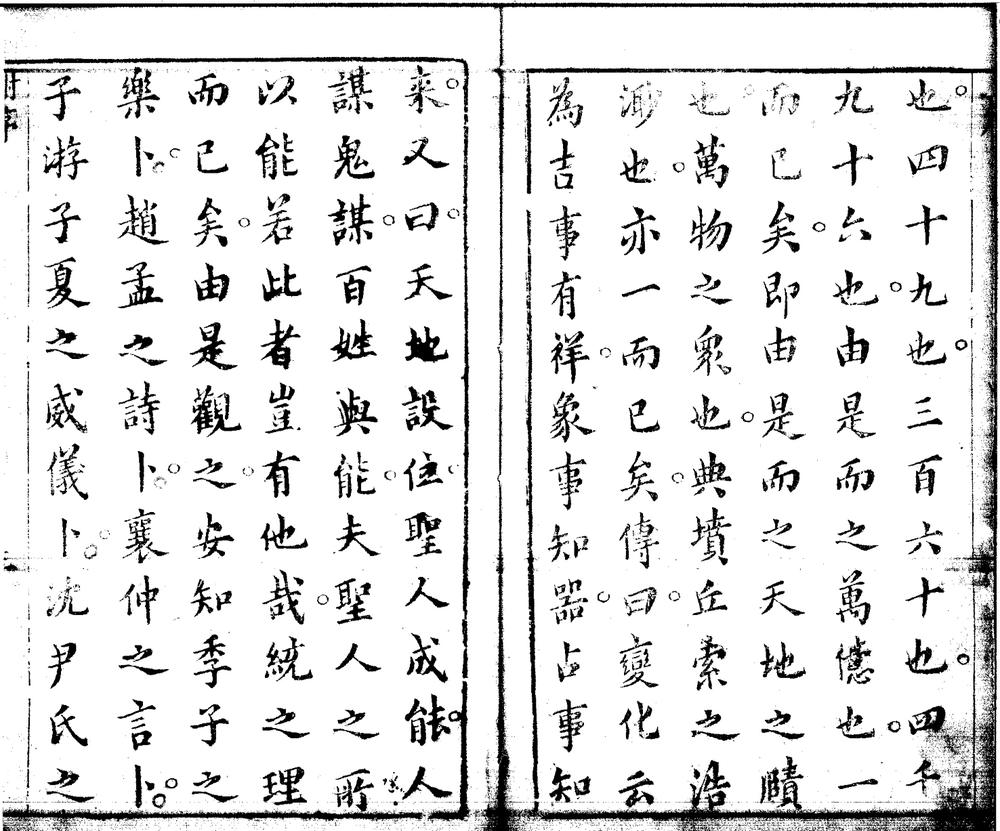 也四十九也三百六十也四千
九十六也由是而之萬億也一
而已矣即由是而之天地之賾
也萬物之衆也典墳丘索之浩
渺也亦一而已矣傳曰變化云
為吉事有祥象事知噐占事知
来又曰天地設位聖人成能人
謀鬼謀百姓與能夫聖人之所
以能若此者豈有他哉統之理
而已矣由是觀之安知季子之
樂卜趙孟之詩卜襄仲之言卜
子游子夏之威儀卜沈尹氏之